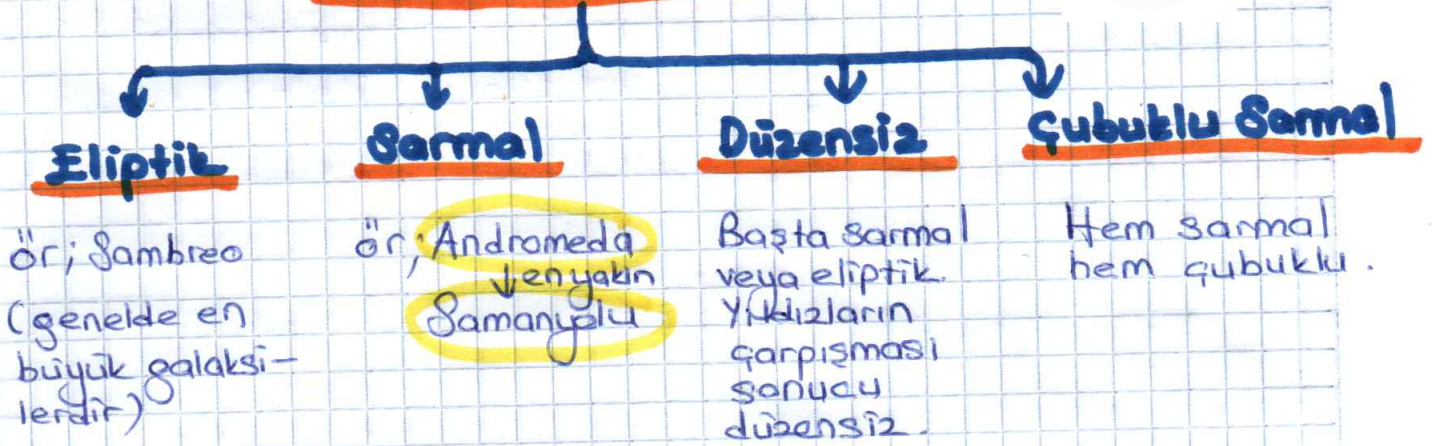 Eliptik
ör; Sambreo
(genelde en
büyük galaksi-
lerdir)
Sarmal
ör; Andromeda
en yakın
Samanyolu
Düzensiz
Başta sarmal
veya eliptik.
Yıldızların
çarpışması
sonucu
düzensiz.
Çubuklu Sarmal
Hem sarmal
hem çubuklu.